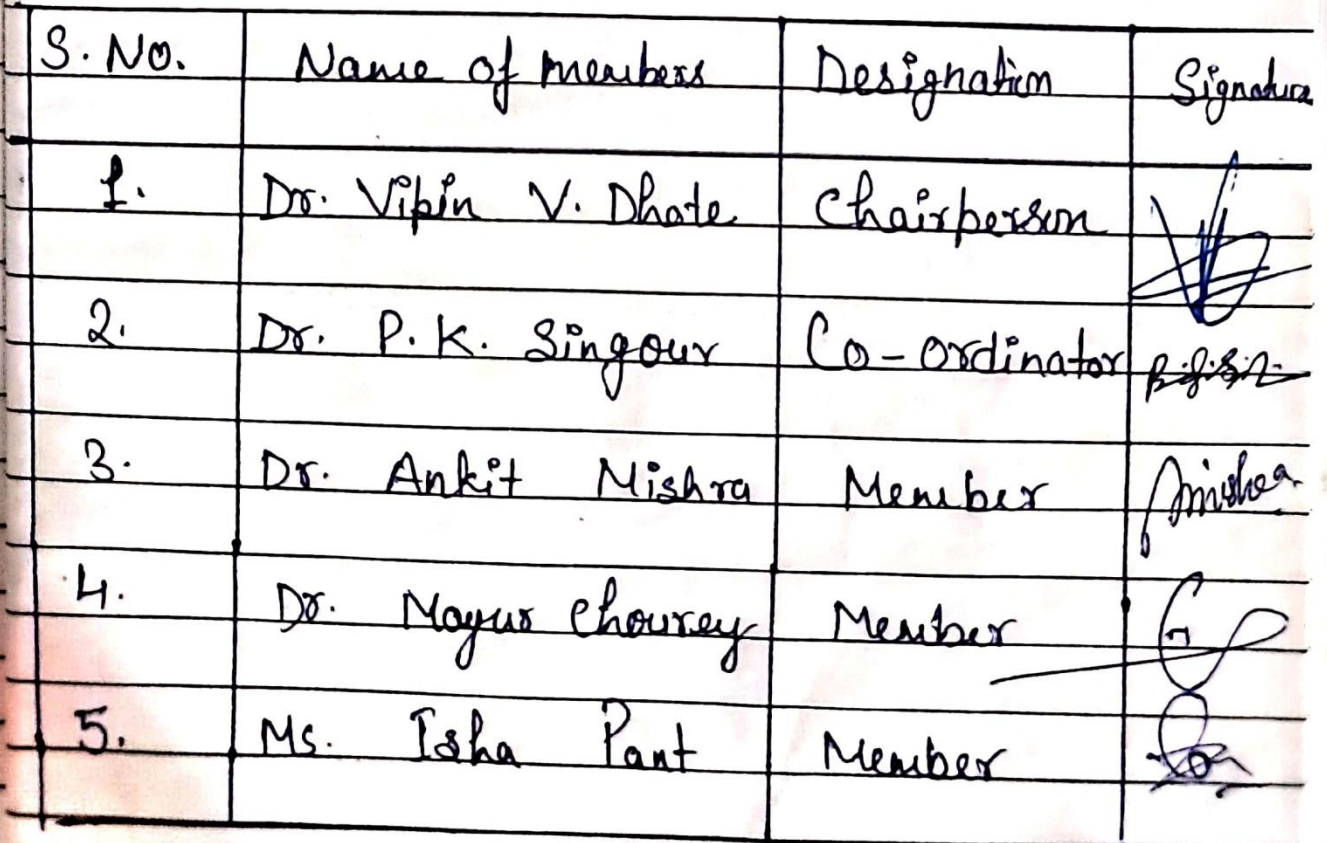 S. No. Name of members Designation Signature
1. Dr. Vipin V. Dhote Chairperson
2. Dr. P. K. Singour Co-ordinator
3. Dr. Ankit Mishra Member Amishra
4. Dr. Mayur Chourey Member
5. Ms. Isha Pant Member